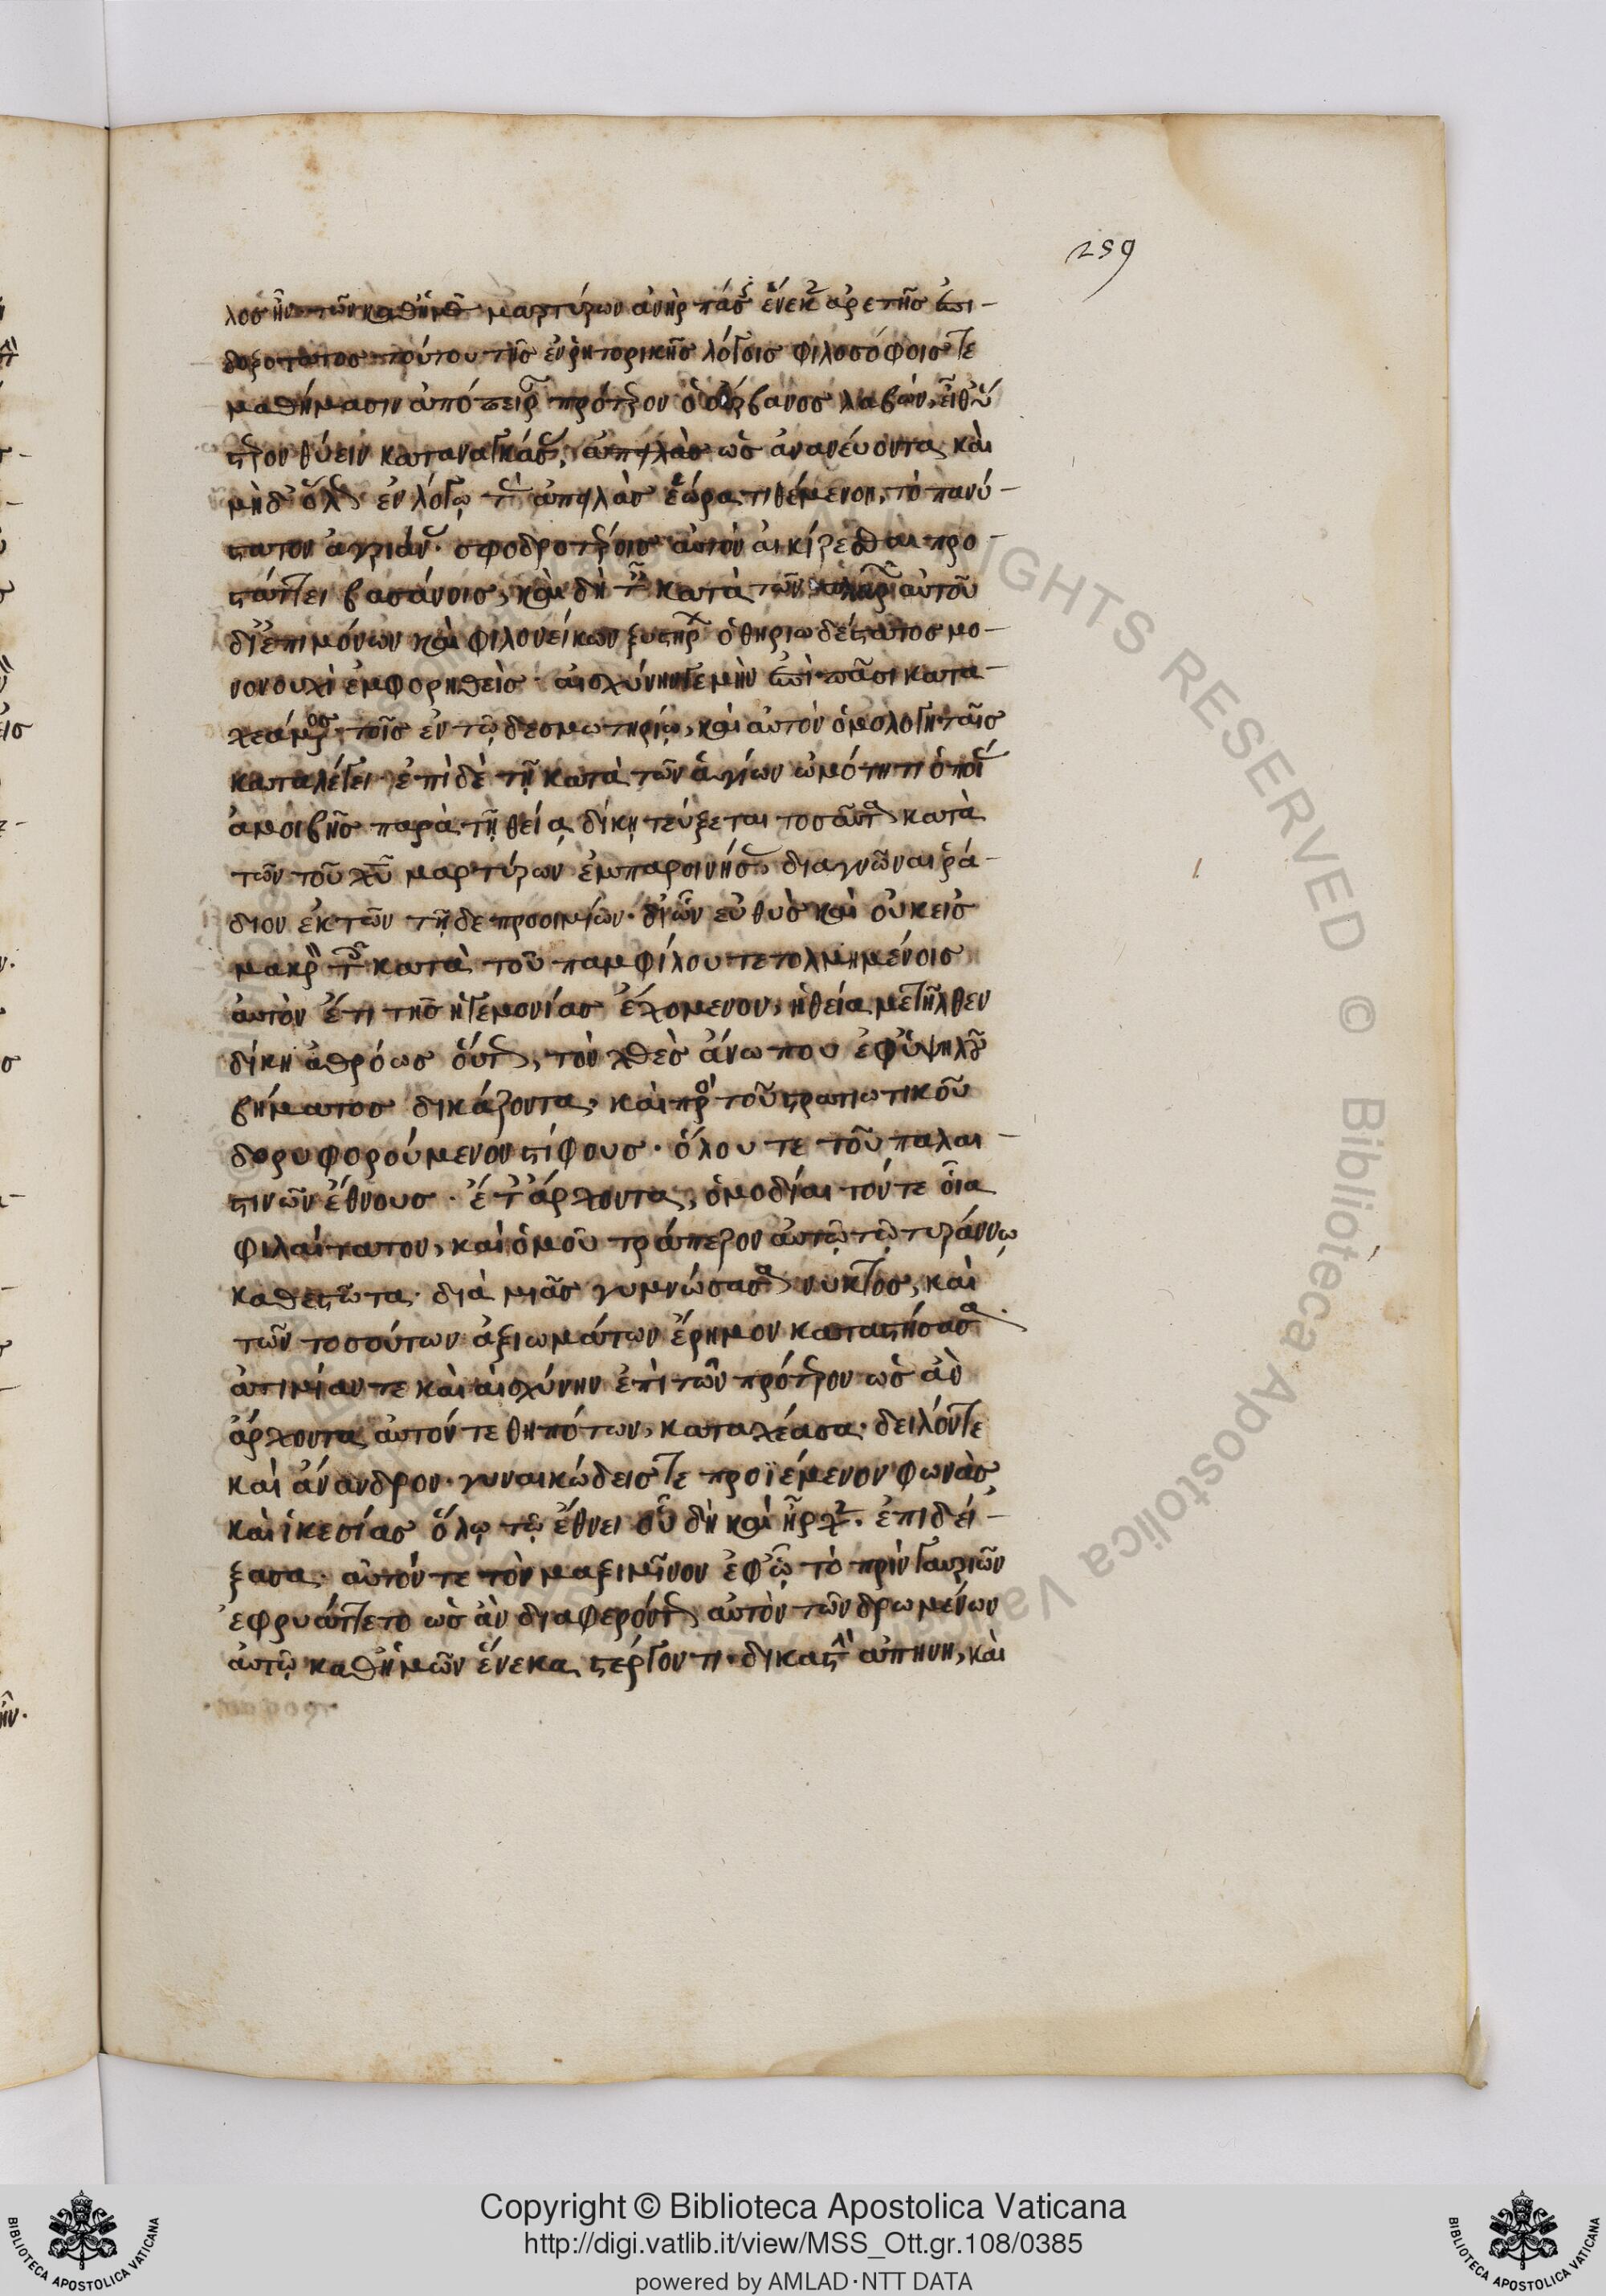 259
λοσ ἦν τῶν καθ' ἡμᾶσ μαρτύρων ἀνὴρ πάσησ ἕνεκα ἀρετῆσ ἐπι-
δοξοτατοσ τούτου τῆσ ἐν ῥητορικῆσ λόγοισ φιλοσόφοισ τε
μαθήμασιν ἀπόπειραν πρότερον ὁ οὐρβανοσ λαβών, εἶθ'
ὕστερον θύειν καταναγκάσασ, ὡσ ἀνανέυοντα καὶ
μὴδ' ὅλωσ ἐν λόγω τὰσ ἀπειλὰσ ἑώρα τιθέμενον, τὸ πανύ-
στατον ἀγριάνασ. σφοδροτέροισ αὐτὸν αἰκίζεσθαι προ-
στάττει βασάνοισ, καὶ δὴ τῶν κατὰ τῶν πλευρῶν αὐτοῦ
δι' ἐπιμόνων καὶ φιλονείκων ξυστήρων ὁ θηριωδέστατοσ μο-
νονουχὶ ἐμφορηθεὶσ. αἰσχύνην γε μὴν ἐπὶ πᾶσι κατα-
χεάμενοσ, τοῖσ ἐν τῶ δεσμωτηρίω, καὶ αὐτὸν ὁμολογηταῖσ
καταλέγει. ἐπὶ δὲ τῆ κατὰ τῶν ἁγίων ὠμότητι ὁποίασ
ἀμοιβῆσ παρὰ τῆ θεία δίκη τεύξεται τοσαῦτα κατὰ
τῶν τοῦ χυ μαρτύρων ἐμπαροινήσασ, διαγνῶναι ῥά-
διον ἐκ τῶν τῆδε προοιμίων. δι' ὧν εὐθὺσ καὶ οὐκ εἰσ
μακρὸν τοῖσ κατὰ τοῦ παμφίλου τετολμημένοισ
αὐτὸν ἔτι τῆσ ἡγεμονίασ ἐχόμενον, ἡ θεία μετῆλθεν
δίκη ἀθρόωσ οὕτωσ, τὸν χθὲσ ἄνω που ἐφ' ὑψηλοῦ
βήματοσ δικάζοντα, καὶ πρὸσ τοῦ στρατιωτικοῦ
δορυφορούμενον στίφουσ. ὅλου τε τοῦ παλαι-
στινῶν ἔθνουσ. ἐπάρχοντα, ὁμοδίαιτόν τε οἷα
φιλαίτατον, καὶ ὁμοῦ τράπεζον αὐτῶ τῶ τυράννω
καθεστῶτα. διὰ μιᾶσ γυμνώσασα νυκτὸσ, καὶ
τῶν τοσούτων ἀξιωμάτων ἔρημον καταστήσασα
ἀτιμίαν τε καὶ αἰσχύνην ἐπὶ τῶν πρότερον ὡσ ἂν
ἄρχοντα αὐτόν τεθηπότων, καταχέασα. δειλόν τε
καὶ ἄνανδρον. γυναικώδεισ τε προϊέμενον φωνὰσ
καὶ ἱκεσίασ ὅλω τῶ ἔθνει οὗ δὴ καὶ ἦρχεν. ἐπιδεί-
ξασα. αὐτόν τε τὸν μαξιμῖνον ἐφ' ᾧ τὸ πρὶν γαυριῶν
ἐφρυάττετο ὡσ ἂν διαφερόντωσ αὐτὸν τῶν δρωμένων
αὐτῶ καθ' ἡμῶν ἕνεκα στέργοντι. δικαστὴν ἀπηνῆ, καὶ
ALL RIGHTS RESERVED © Biblioteca Apostolica Vaticana
Copyright © Biblioteca Apostolica Vaticana
http://digi.vatlib.it/view/MSS_Ott.gr.108/0385
powered by AMLAD·NTT DATA
BIBLIOTECA APOSTOLICA VATICANA
BIBLIOTECA APOSTOLICA VATICANA